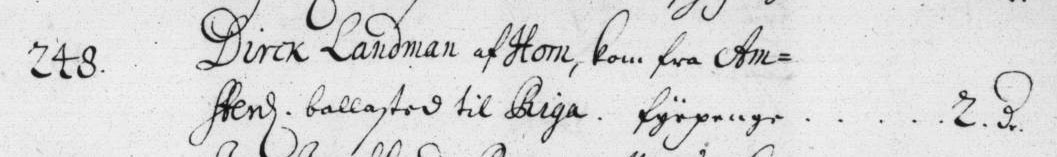 248. Dirck Landman af Horn, kom fra Am=
sterd. ballasted til Riga. fyrpenge . . . . . . 2. Dr.